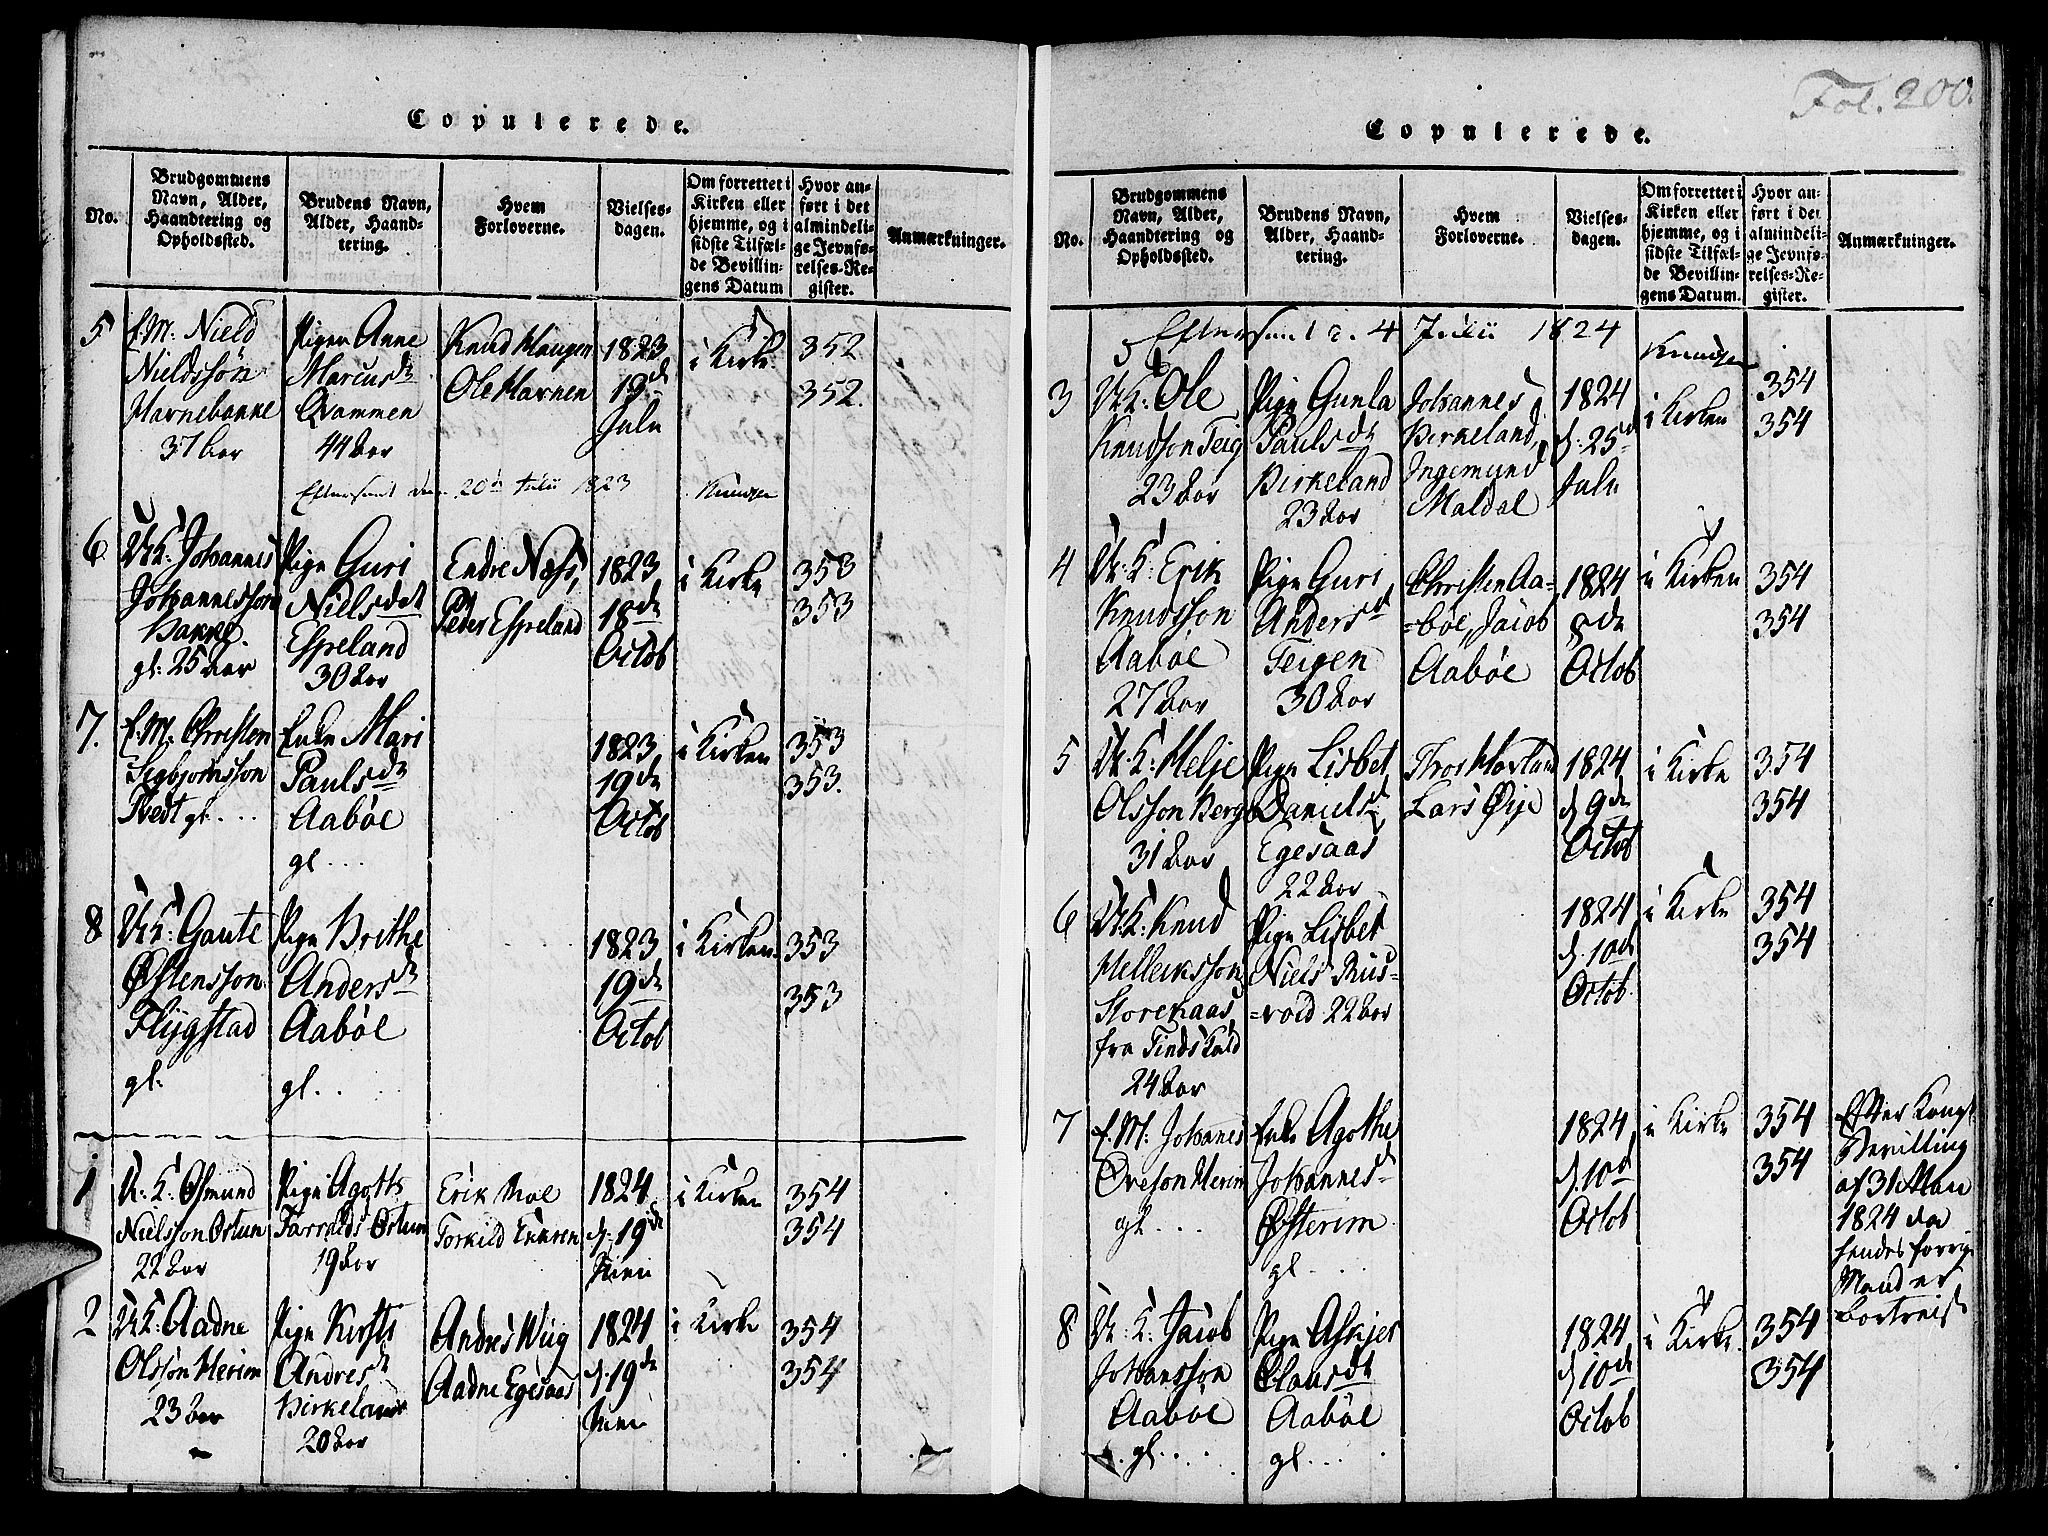 Copulerede.
No.
Brudgommens
Navn, Alder,
Haandtering og
Opholdssted.
Brudens Navn,
Alder, Haand-
tering.
Hvem
Forloverne.
Vielses-
dagen.
Om forrettet i
Kirken eller
hjemme, og i
sidste Tilfæl-
de Bevillin-
gens Datum
Hvor an-
ført i det
almindeli-
ge Jevnfø-
relses-Re-
gister.
Anmærkninger.
5
E.M. Nield
Nieldssøn
37 aar
Pigen Anne
Marcusdr
Qvammen
44 aar
Knud Haugen
1823
19de
Julii
i Kirke
352
352.
Efterseet den 20de Julii 1823
6
U.K. Johannes
Johannessøn
Bakke
gl. 25 aar
Pige Guri
Nielsdatr
Espeland
30 aar
Endre Næss,
Peder Espeland
1823
18de
Octob
i Kirke
353
353
7.
E.M. Christen
Sigbjørnsson
Tvedt gl. ...
Enke Mari
Paulsdr
Aabøe
gl ...
1823
19de
Octob
i Kirken
353
353.
8
U.K. Gaute
Østensson
Flygstad
gl.
Pige Brithe
Andersdr
Aabøe
gl. ...
1823
19de
Octob
i Kirken
353
353
1
U. K. Osmund
Nielsson Østun
22 aar
Pige Agothe
Østun
19 aar
Erik Moe
Torkild
1824
d. 19de
Juni
i Kirken
354
354
2
U.K. Aadne
Olsson Herim
23 aar
Pige Kirsti
Andresdr
Birkeland
20 aar
Andres Wiig
Aadne Egesaas
1824
d. 19de
Juni
i Kirke
354
354
Fol. 200.
Copulerede.
No.
Brudgommens
Navn, Alder,
Haandtering og
Opholdssted.
Brudens Navn,
Alder, Haand-
tering.
Hvem
Forloverne.
Vielses-
dagen.
Om forrettet i
Kirken eller
hjemme, og i
sidste Tilfæl-
de Bevillin-
gens Datum.
Hvor an-
ført i det
almindeli-
ge Jevnfø-
relses-Re-
gister.
Anmærkninger.
Efterseet d. 4 Julii 1824
3
U.K. Ole
Knudson Teig
23 aar
Pige Gunla
Paulsdr
Birkeland
23 aar
Johannes
Birkeland,
Ingemund
Maldal
1824
d. 25de
Julii
i Kirken
354
354
4
U. K. Erik
Knudsson
Aabøe
27 aar
Pige Guri
Andersd
Teigen
30 aar
Christen Aa-
=bøe, Jacob
Aabøe
1824
8de
Octob
i Kirken
354
354
5
U. K. Helje
Olsson Berge
31 aar
Pige Lisbet
Danielsd
Egesaas
22 aar
Lars Øije
1824
d 9de
Octob
i Kirke
354
354
6
U.K. Knud
Storekaas
24 aar
Pige Lisbet
Niels
22 aar
1824
d. 10de
Octob.
i Kirke
354
354
7
E. M. Johanes
Oveson Herim
gl. ...
Enke Agothe
Johannesd
Østerim
gl. ...
1824
d. 10d
Octob
i Kirke
354
354
Efter Kongl
Bevilling
af 31 Mai
1824 da
hendes forrige
Mand er
bortreist
8
U. K. Jacob
Johansson
Aabøe
gl. ...
Pige Askjer
Clausdr
Aabøe
gl. ...
1824
d 10de
Octob
i Kirke.
354
354